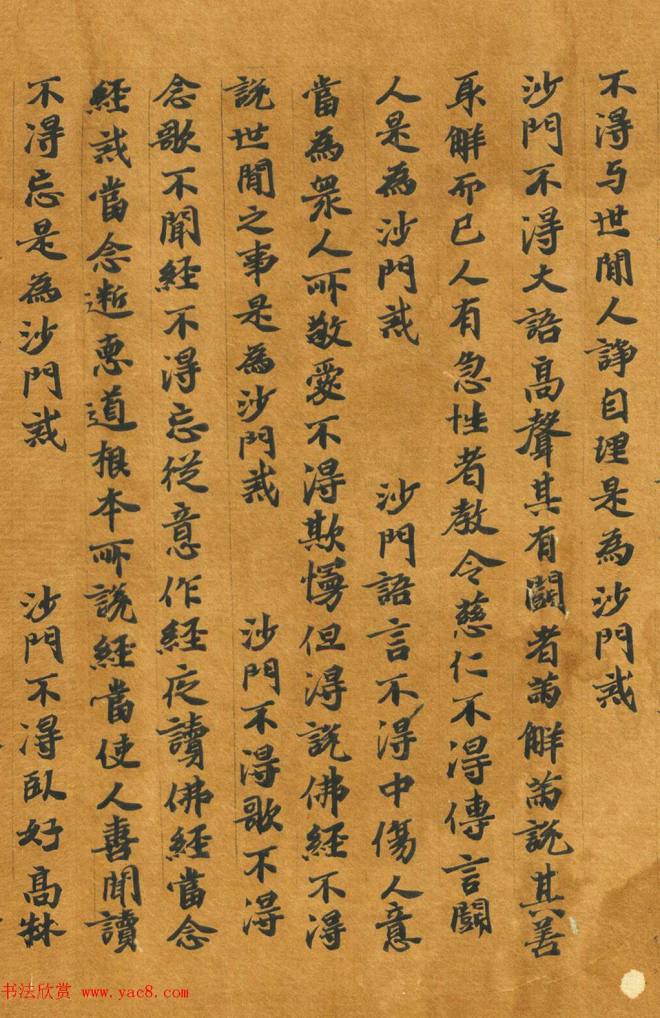 不得与世間人諍自理是為沙門戒
沙門不得大語高聲其有鬪者當解當說其善
取解而已人有急性者教令慈仁不得傳言鬪
人是為沙門戒　沙門語言不得中傷人意
當為眾人所敬愛不得欺慢但得說佛經不得
說世間之事是為沙門戒　沙門不得歌不得
念歌不聞經不得忘從意作經夜讀佛經當念
經戒當念遬惠道根本所說經當使人喜聞讀
不得忘是為沙門戒　沙門不得臥好高牀
书法欣赏 www.yac8.com